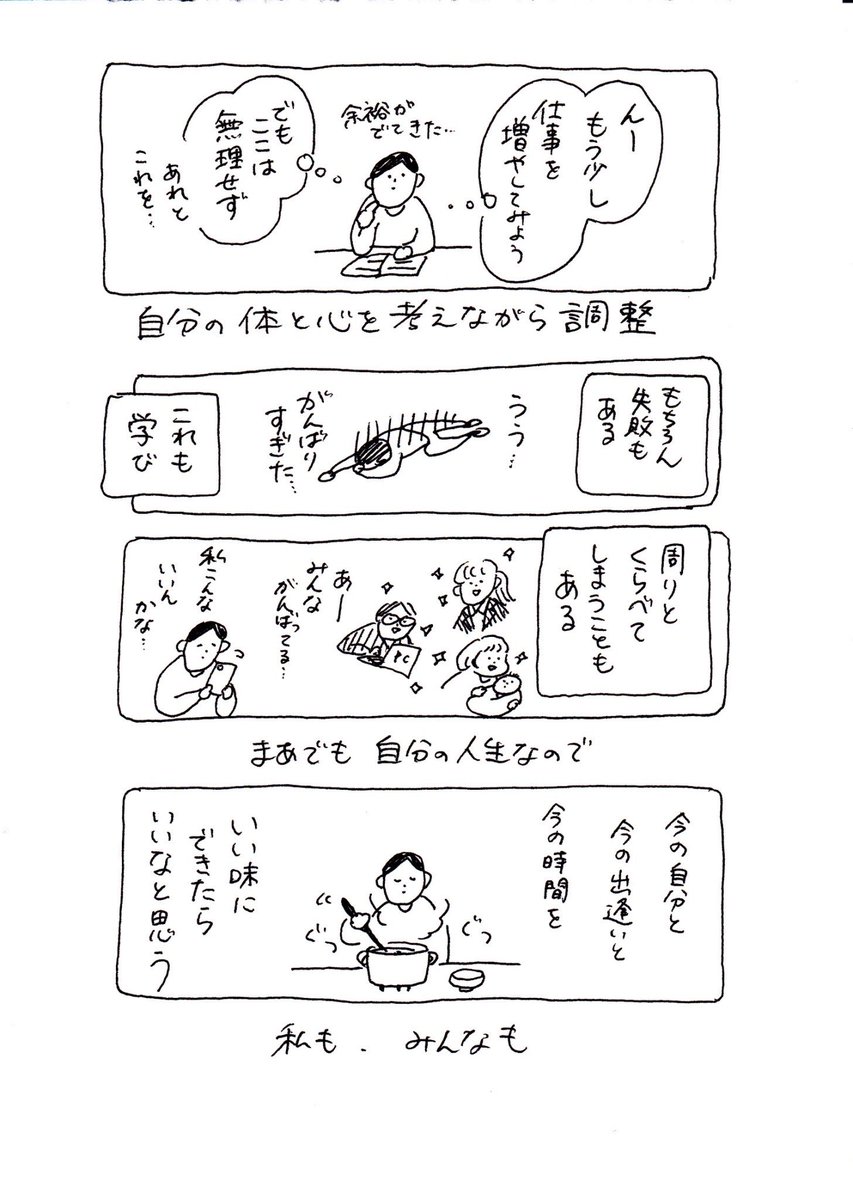 んー
もう少し
仕事を
増やしてみよう
余裕が
でてきた…
でも
ここは
無理せず
あれと
これを…
自分の体と心を考えながら調整
もちろん
失敗も
ある
うう…
がんばり
すぎた…
これも
学び
周りと
くらべて
しまうことも
ある
あー
みんな
がんばってる…
PC
私こんな
いいん
かな…
まあでも 自分の人生なので
今の自分と
今の出逢いと
今の時間を
ぐつ
ぐつ
いい味に
できたら
いいなと思う
私も、みんなも